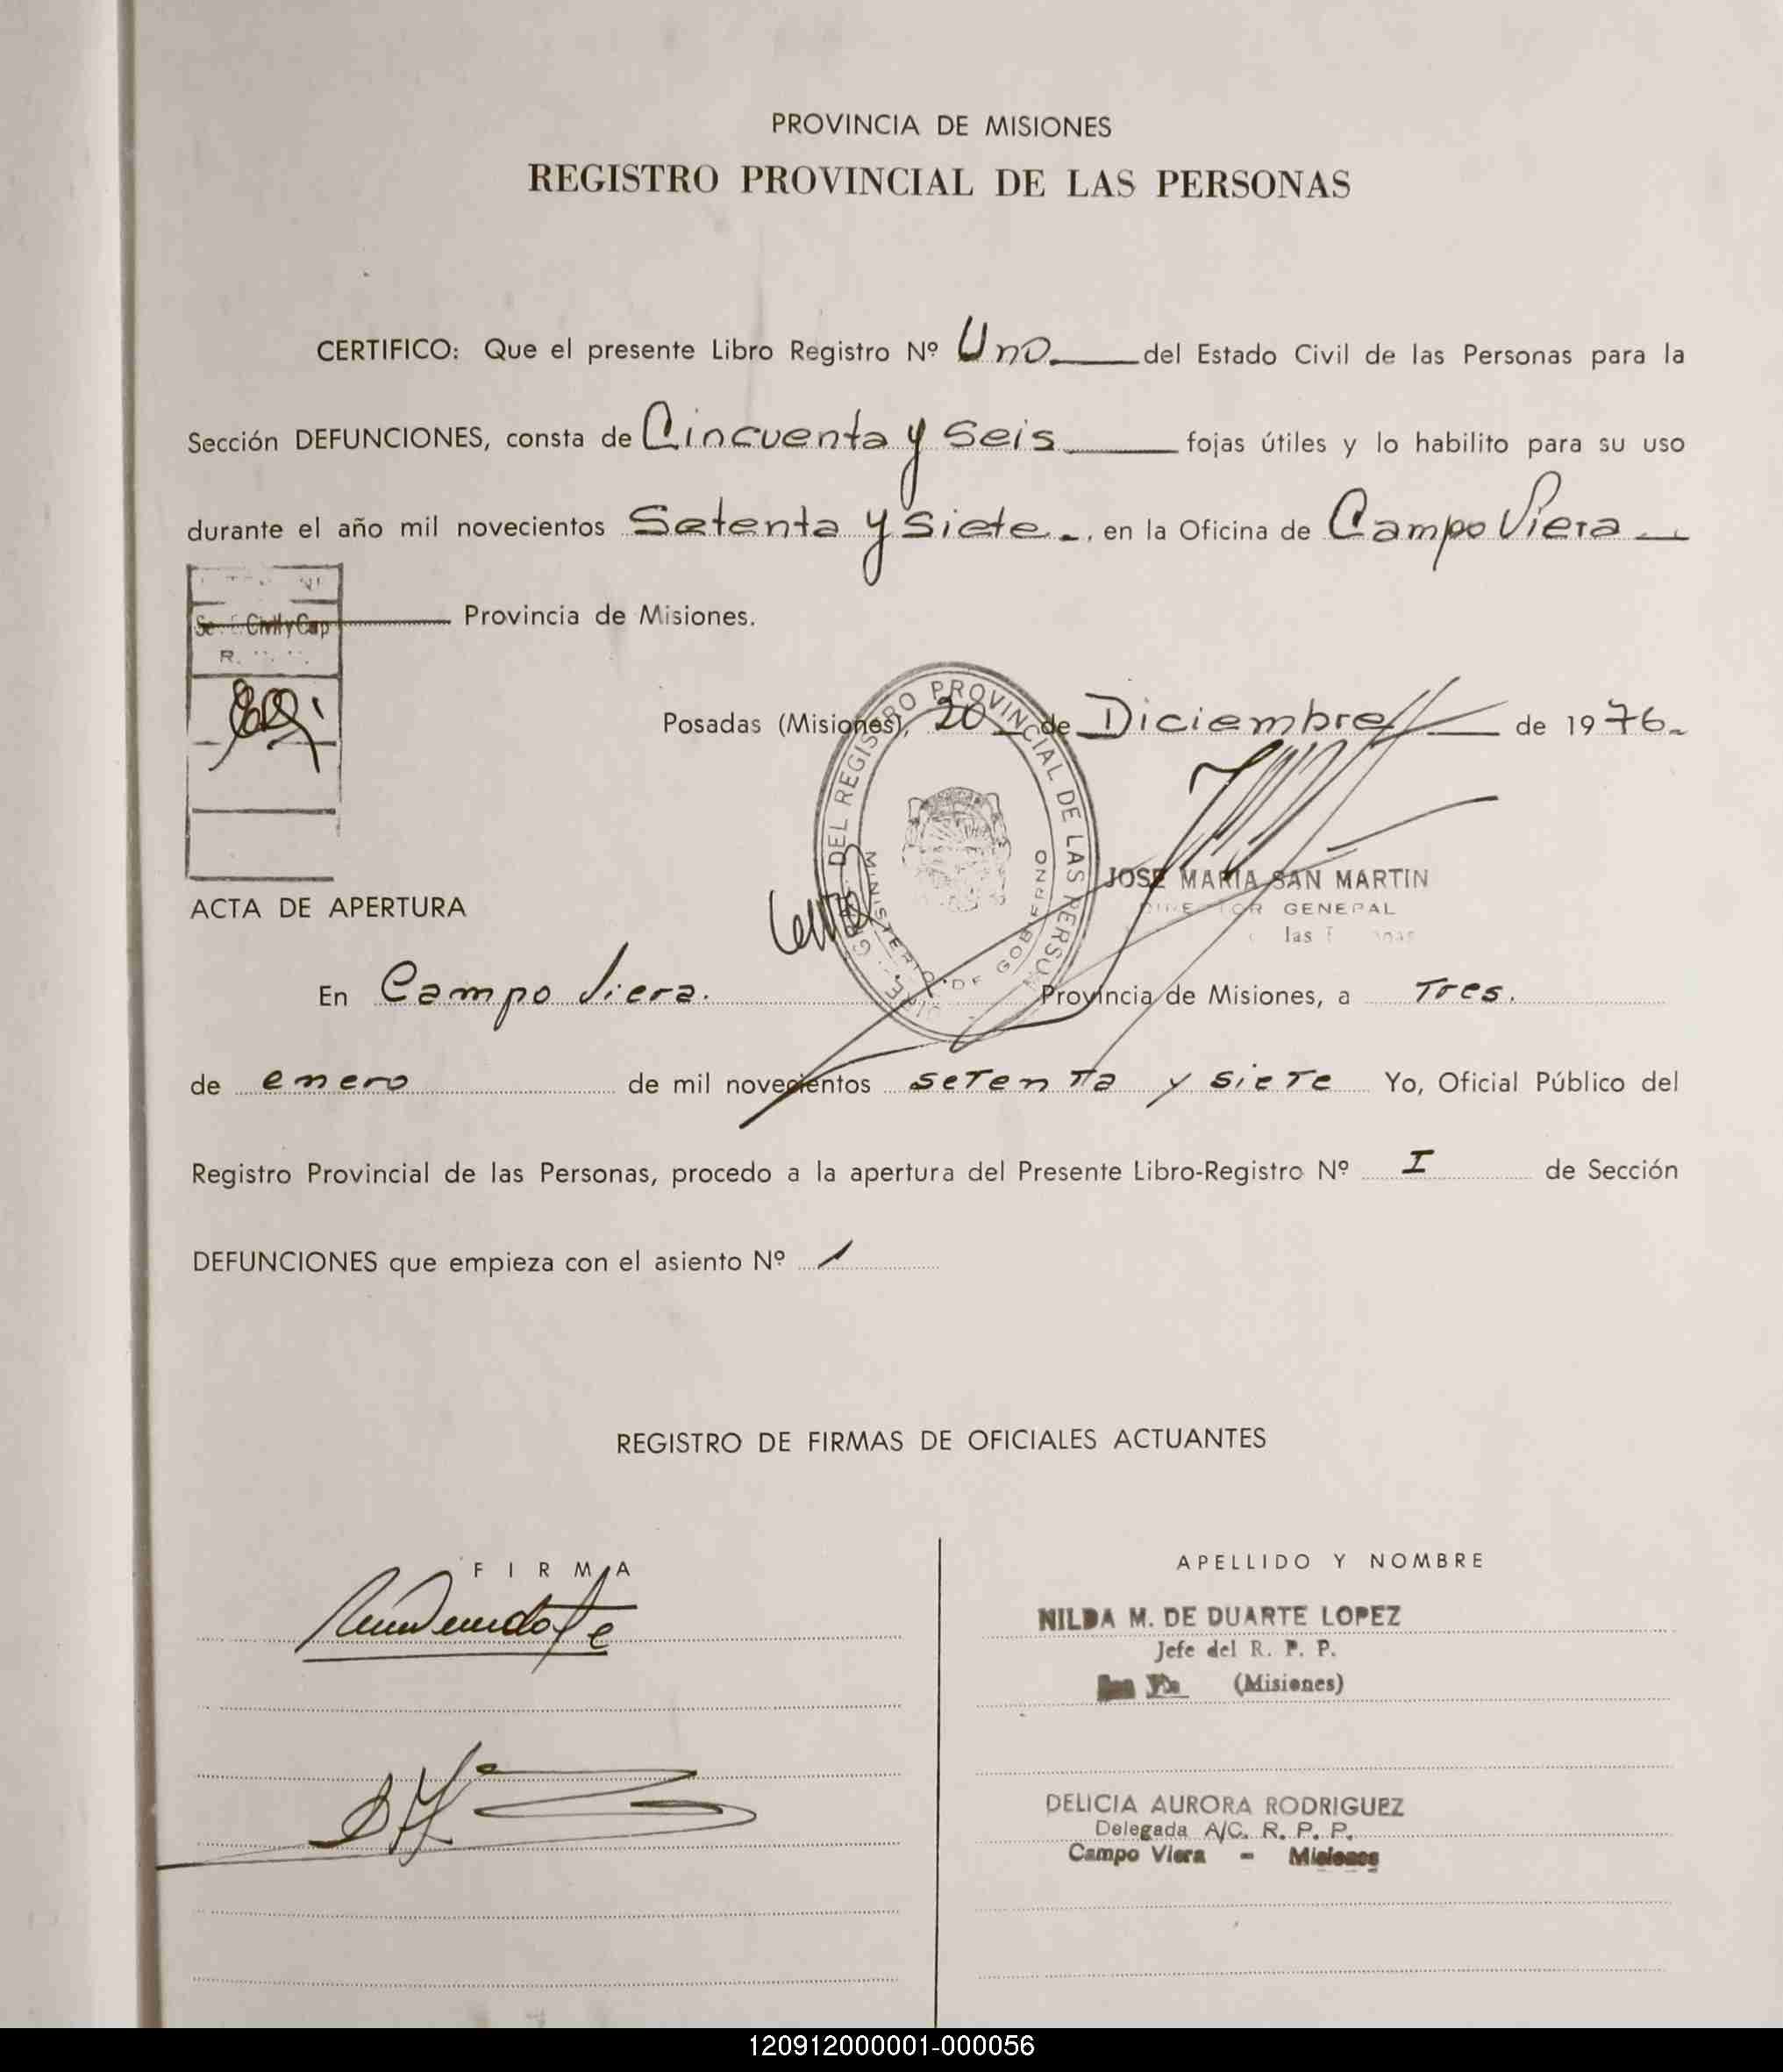 PROVINCIA DE MISIONES
REGISTRO PROVINCIAL DE LAS PERSONAS
CERTIFICO: Que el presente Libro Registro Nº Uno del Estado Civil de las Personas para la
Sección DEFUNCIONES, consta de Cincuenta y Seis fojas útiles y lo habilito para su uso
durante el año mil novecientos Setenta y Siete., en la Oficina de Campo Viera
Civil y Cap
Provincia de Misiones.
Posadas (Misiones), 20 de Diciembre de 1976.
DEL REGISTRO PROVINCIAL DE LAS PERSONAS
MINISTERIO DE GOBIERNO
JOSE MARIA SAN MARTIN
DIRECTOR GENERAL
las
ACTA DE APERTURA
En Campo Viera. Provincia de Misiones, a Tres.
de enero de mil novecientos setenta y siete Yo, Oficial Público del
Registro Provincial de las Personas, procedo a la apertura del Presente Libro-Registro Nº I de Sección
DEFUNCIONES que empieza con el asiento Nº 1
REGISTRO DE FIRMAS DE OFICIALES ACTUANTES
FIRMA
APELLIDO Y NOMBRE
NILDA M. DE DUARTE LOPEZ
Jefe del R. P. P.
(Misiones)
DELICIA AURORA RODRIGUEZ
Delegada A/C. R. P. P.
Campo Viera - Misiones
120912000001-000056